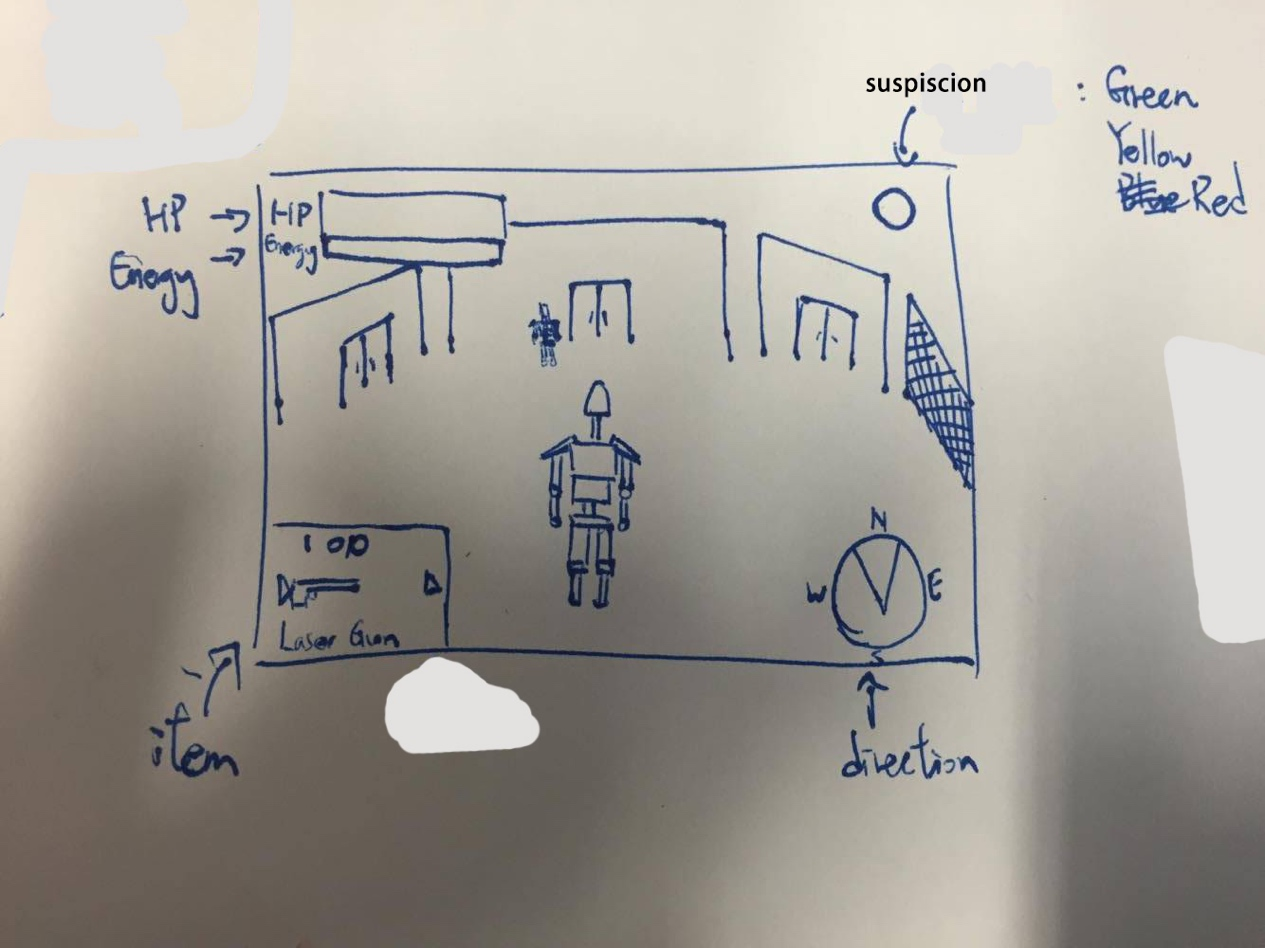 suspiscion
: Green
Yellow
Red
HP →
HP
Energy →
Energy
N
W
E
S
Laser Gun
item
direction